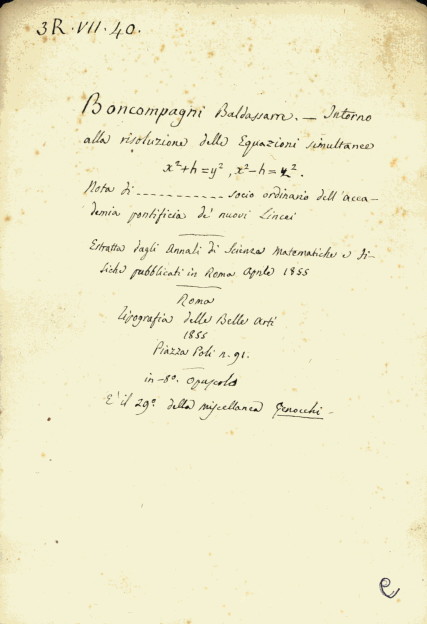 3R.VII.40.
Boncompagni Baldassarre. — Intorno
alla risoluzione delle Equazioni simultanee
x²+h=y², x²-h=z².
Nota di ———— socio ordinario dell'acca-
demia pontificia de' nuovi Lincei
Estratta dagli Annali di Scienze Matematiche e Fi-
siche pubblicati in Roma Aprile 1855
Roma
Tipografia delle Belle Arti
1855
Piazza Poli n. 91.
in-8°. Opuscolo
E' il 29° della miscellanea Genocchi -